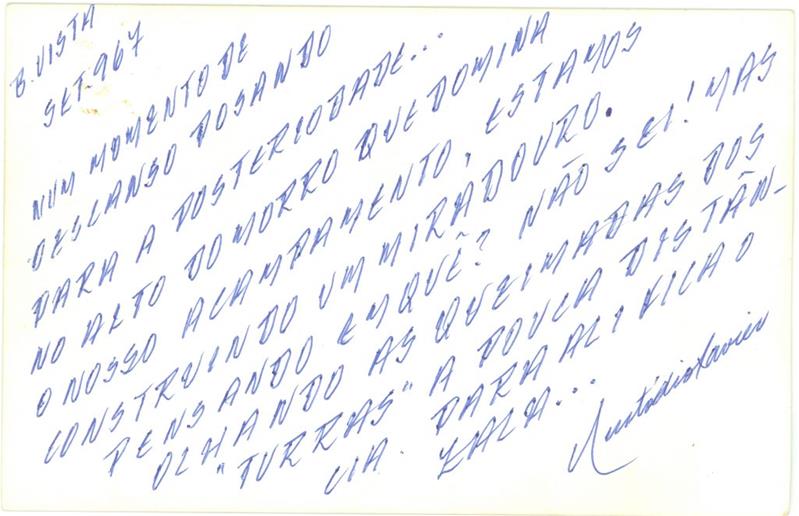 B. VISTA
SET-967
NUM MOMENTO DE
DESCANSO POSANDO
PARA A POSTERIODADE...
NO ALTO DO MORRO QUE DOMINA
O NOSSO ACAMPAMENTO, ESTAMOS
CONSTRUINDO UM MIRADOURO.
PENSANDO EM QUÊ? NÃO SEI! MAS
OLHANDO AS QUEIMADAS DOS
"TURRAS" A POUCA DISTÂN-
CIA. PARA ALI FICA O
ZALA...
Custódio Xavier